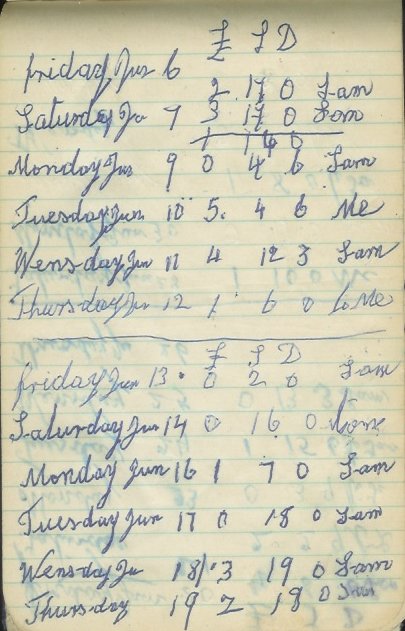 £ S D
Friday, Jun 6 2 17 0 Sam
Saturday Ju 7 3 17 0 Sam
1 14 0
Monday Jun 9 0 4 6 Sam
Tuesday Jun 10 5. 4 6 Me
Wens-day Jun 11 4 12 3 Sam
Thurs-day Jun 12 1 6 0 Me
£ S D
Friday Jun 13 0 2 0 Sam
Saturday Jun 14 0 16 0
Monday Jun 16 1 7 0 Sam
Tuesday Jun 17 0 18 0 Sam
Wens-day Ju 18 3 19 0 Sam
Thurs-day 19 2 18 0 Sam